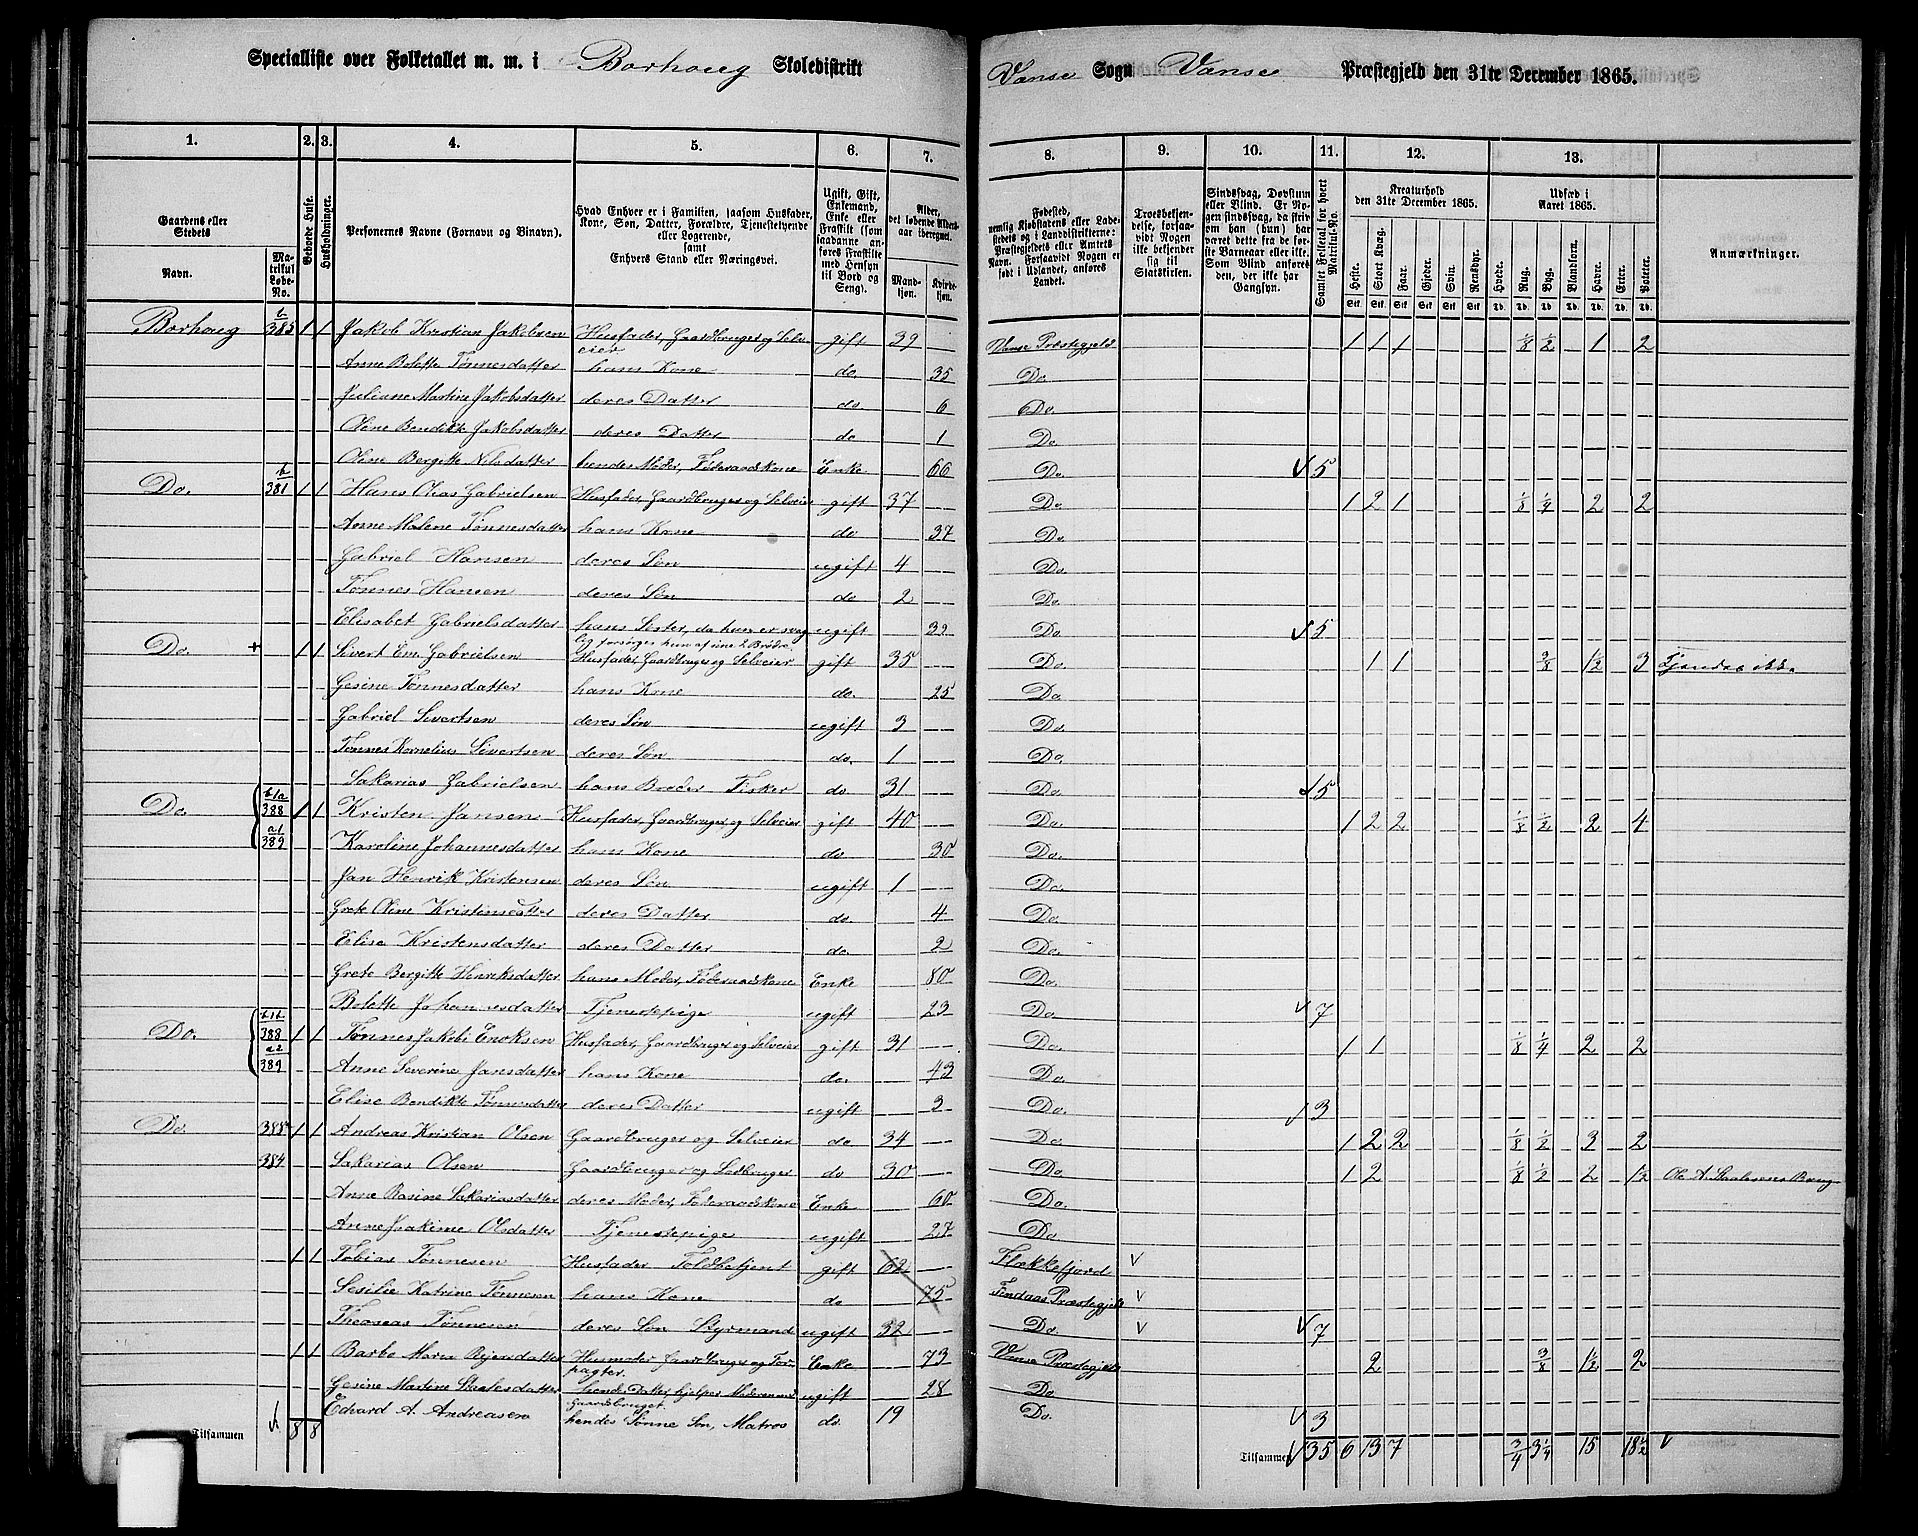 Specialliste over Folketallet m. m. i Borhoug Skoledistrikt
Vanse Sogn Vanse Præstegjeld den 31te December 1865.
1. 2. 3. 4. 5. 6. 7. 8. 9. 10. 11. 12. 13.
Gaardens eller Stedets
Navn.
Matrikul Løbe-No.
Beboede Huse.
Husholdninger.
Personernes Navne (Fornavn og Binavn).
Hvad Enhver er i Familien, saasom Husfader, Kone, Søn, Datter, Forældre, Tjenestetyende eller Logerende, samt Enhvers Stand eller Næringsvei.
Ugift, Gift, Enkemand, Enke eller Fraskilt (som saadanne anføres Fraskilte med Hensyn til Bord og Seng).
Alder, det løbende Alders-aar iberegnet.
Mandkjøn. Kvindekjøn.
Fødested, nemlig Kjøbstadens eller Ladestedets og i Landdistrikterne: Præstegjeldets eller Amtets Navn. Forsaavidt Nogen er født i Udlandet, anføres Landet.
Troesbekjendelse, forsaavidt Nogen ikke bekjender sig til Statskirken.
Sindssvag, Døvstum eller Blind. Er Nogen sindssvag, da skrives om han (hun) har været dette fra de første Barneaar eller ikke. Som Blind anføres den, der ikke har Gangsyn.
Samlet Folketal for hvert Matrikul-No.
Kreaturhold den 31te December 1865.
Heste. Stort Kvæg. Faar. Gjeder. Svin. Rensdyr.
Udsæd i Aaret 1865.
Hvede. Rug. Byg. Blandkorn. Havre. Erter. Poteter.
Anmærkninger.
Borhoug b 385 1 1 Jakob Kristian Jakobsen Husfader, Gaardbruger og Selveier gift 39 Vanse Præstegjeld 1 1 1 1/8 1/2 1 2
Anne Bolette Tønnesdatter hans Kone do. 35 Do.
Juliane Martine Jakobsdatter deres Datter do 6 Do.
Oline Bendikte Jakobsdatter deres Datter do 1 Do
Oline Bergitte Nilsdatter hendes Moder, Føderaadskone Enke 66 Do. 5
Do. b 381 1 1 Hans Olias Gabrielsen Husfader, Gaardbruger og Selveier gift 37 Do. 1 2 1 1/8 1/4 2 2
Anne Malene Tønnesdatter hans Kone do 37 Do.
Gabriel Hansen deres Søn ugift 4 Do.
Tønnes Hansen deres Søn do 2 Do.
Elisabet Gabrielsdatter hans Søster, da hun er svag ugift 39 Do. 5
lig forsørges hun af sine 2 Brødre.
Do. + 1 1 Sivert Em. Gabrielsen Husfader, Gaardbruger og Selveier gift 35 Do. 1 1 3/8 1 1/2 3
Gesine Tønnesdatter hans Kone do. 25 Do.
Gabriel Sivertsen deres Søn ugift 3 Do.
Tønnes Kornelius Sivertsen deres Søn do. 1 Do.
Sakarias Gabrielsen hans Broder Fisker do 31 Do. 5
Do. b1a 388 a1 389 1 1 Kristen Jansen Husfader, Gaardbruger, og Selveier gift 40 Do. 1 2 2 1/8 1/2 2 4
Karoline Johannesdatter hans Kone do 30 Do.
Jan Henrik Kristensen deres Søn ugift 1 Do.
Grete Oline Kristensdatter deres Datter do. 4 Do.
Elise Kristensdatter deres Datter do. 2 Do.
Grete Bergitte Henriksdatter hans Moder, Føderaadskone Enke 80 Do.
Bolette Johannesdatter Tjenestepige ugift 23 Do. 7
Do. b1b 388 a2 389 1 1 Tønnes Jakobi Enoksen Husfader, Gaardbruger og Selveier gift 31 Do. 1 1 1/8 1/4 2 2
Anne Severine Jansdatter hans Kone do. 43 Do.
Elise Bendikte Tønnesdatter deres Datter ugift 3 Do. 3
Do. 388 1 1 Andreas Kristian Olsen Gaardbruger og Selveier do 34 Do. 1 2 2 1/8 1/2 3 2
384 Sakarias Olsen Gaardbruger og do 30 Do. 1 2 1/8 1/2 2 1 1/2 Ole A. Staalesens Brug
Anne Rasine Sakariasdatter deres Moder, Føderaadskone Enke 60 Do.
Anne Joakime Olsdatter Tjenestepige ugift 27 Do
1 1 Tobias Tønnesen Husfader Toldbetjent gift 62 Flekkefjord V
Sesilie Katrine Tønnesen hans Kone do 75 Findaas Præstegjeld V
Thomas Tønnesen deres Søn Styrmand ugift 32 Do. V 7
1 1 Barbo Maria Reiersdatter Husmoder Gaardbruger og Forpagter Enke 73 Vanse Præstegjeld 2 3/8 1 1/2 2
Gesine Martine Staalesdatter hendes Datter, hjelper Moderen ved Gaardsbruget. ugift 28 Do.
Edvard A. Andreasen hendes Sønne Søn, Matros do. 19 Do. 3
Tilsammen 8 8
Tilsammen 35 6 13 7 3/4 3 1/4 15 18 1/2